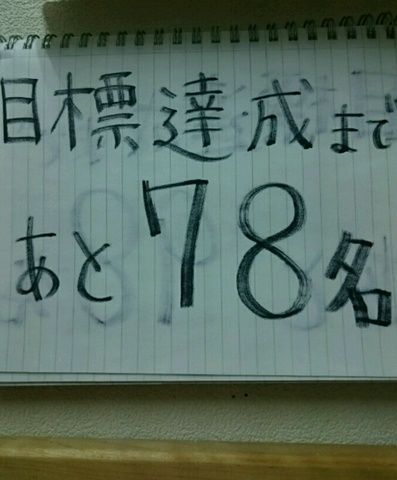 目標達成まで
あと78名